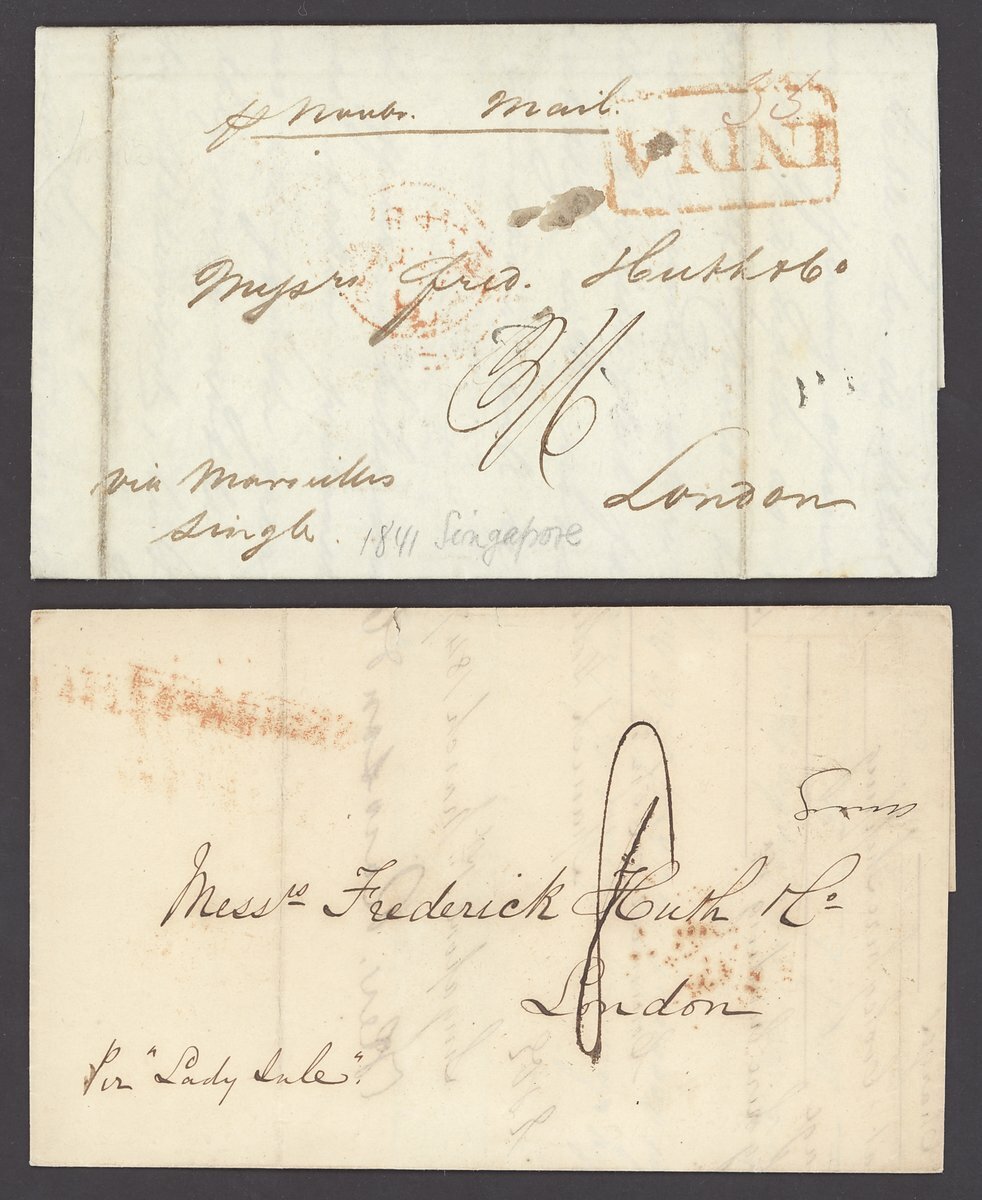 Mail.
INDIA
Messrs Fred. Huth & Co
London
via Marseilles
single.
1841 Singapore
Messrs Frederick Huth & Co
London
Per "Lady Sale".